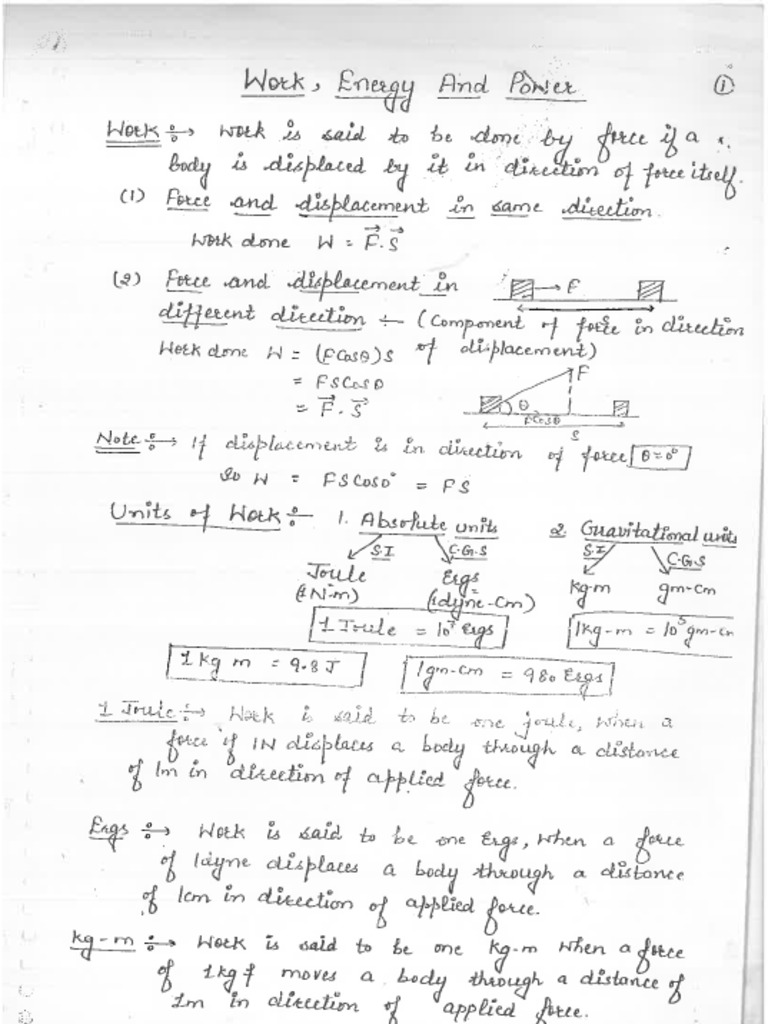 Work, Energy And Power
①
Work ÷→ Work is said to be done by force if a
body is displaced by it in direction of force itself.
(1) Force and displacement in same direction.
Work done W = F⃗.S⃗
(2) Force and displacement in
→ F
different direction ÷ (Component of force in direction
of displacement)
Work done W = (FCosθ)S
= FSCosθ
= F⃗.S⃗
F
θ
FCosθ
S
Note ÷→ If displacement is in direction of force θ=0°
So W = FSCos0° = FS
Units of Work ÷ 1. Absolute units 2. Gravitational units
S.I C.G.S S.I C.G.S
Joule Ergs kg-m gm-cm
(1N-m) (1dyne-Cm)
1 Joule = 10⁷ Ergs 1kg-m = 10⁵ gm-cm
1 kg m = 9.8 J 1gm-cm = 980 Ergs
1 Joule ÷→ Work is said to be one joule, when a
force if 1N displaces a body through a distance
of 1m in direction of applied force.
Ergs ÷→ Work is said to be one Ergs, when a force
of 1dyne displaces a body through a distance
of 1cm in direction of applied force.
kg-m ÷→ Work is said to be one kg-m when a force
of 1kgf moves a body through a distance of
1m in direction of applied force.